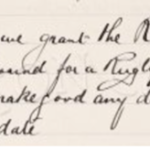 we grant the R
ound for a Rugby
make good any d
date